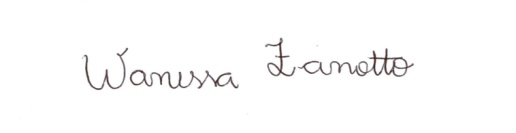 Wanessa Zanotto